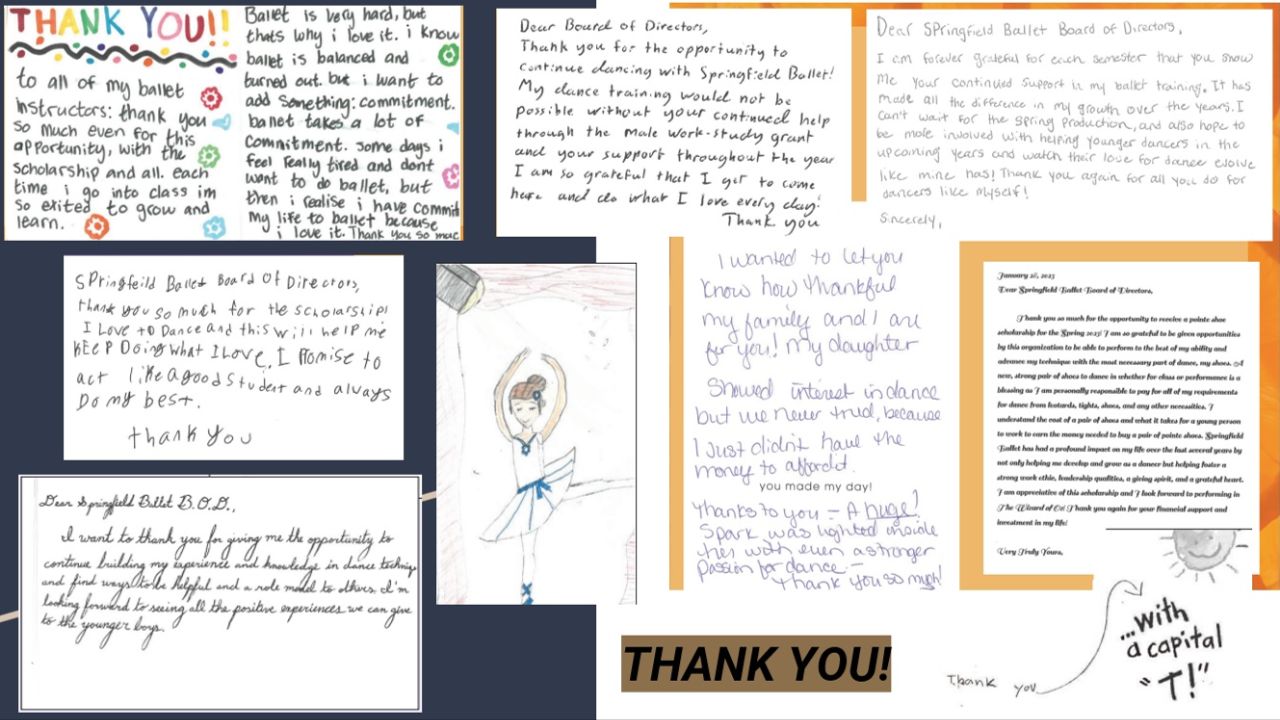 THANK YOU!!
to all of my ballet
instructors: thank you
so much even for this
opportunity, with the
scholarship and all. each
time i go into class im
so exited to grow and
learn.
Ballet is very hard, but
thats why i love it. i know
ballet is balanced and
turned out. but i want to
add something: commitment.
ballet takes a lot of
commitment. some days i
feel really tired and dont
want to do ballet, but
then i realise i have commit
my life to ballet because
i love it. Thank you so muc
Dear Board of Directors,
Thank you for the opportunity to
continue dancing with Springfield Ballet!
My dance training would not be
possible without your continued help
through the male work-study grant
and your support throughout the year
I am so grateful that I get to come
here and do what I love every day!
Thank you
Dear Springfield Ballet Board of Directors,
I am forever grateful for each semester that you show
me your continued support in my ballet training. It has
made all the difference in my growth over the years. I
can't wait for the spring production, and also hope to
be more involved with helping younger dancers in the
upcoming years and watch their love for dance evolve
like mine has! Thank you again for all you do for
dancers like myself!
Sincerely,
SPringfeild Ballet Board Of Directors,
thank you so much for the scholarship!
I Love to Dance and this will help me
KEEP Doing what I Love. I Promise to
act like a good student and always
Do my best.
thank you
I wanted to let you
know how thankful
my family and I are
for you! My daughter
showed interest in dance
but we never tried, because
I just didn't have the
money to afford it.
you made my day!
Thanks to you – A huge!
Spark was lighted inside
her with even a stronger
passion for dance –
Thank you so much!
January 28, 2023
Dear Springfield Ballet Board of Directors,
Thank you so much for the opportunity to receive a pointe shoe
scholarship for the Spring 2023! I am so grateful to be given opportunities
by this organization to be able to perform to the best of my ability and
advance my technique with the most necessary part of dance, my shoes. A
new, strong pair of shoes to dance in whether for class or performance is a
blessing as I am personally responsible to pay for all of my requirements
for dance from leotards, tights, shoes, and any other necessities. I
understand the cost of a pair of shoes and what it takes for a young person
to work to earn the money needed to buy a pair of pointe shoes. Springfield
Ballet has had a profound impact on my life over the last several years by
not only helping me develop and grow as a dancer but helping foster a
strong work ethic, leadership qualities, a giving spirit, and a grateful heart.
I am appreciative of this scholarship and I look forward to performing in
The Wizard of Oz! Thank you again for your financial support and
investment in my life!
Very Truly Yours,
Dear Springfield Ballet B.O.D.,
I want to thank you for giving me the opportunity to
continue building my experience and knowledge in dance techniq
and find ways to be helpful and a role model to others. I'm
looking forward to seeing all the positive experiences we can give
to the younger boys.
THANK YOU!
Thank you
...with
a capital
"T!"